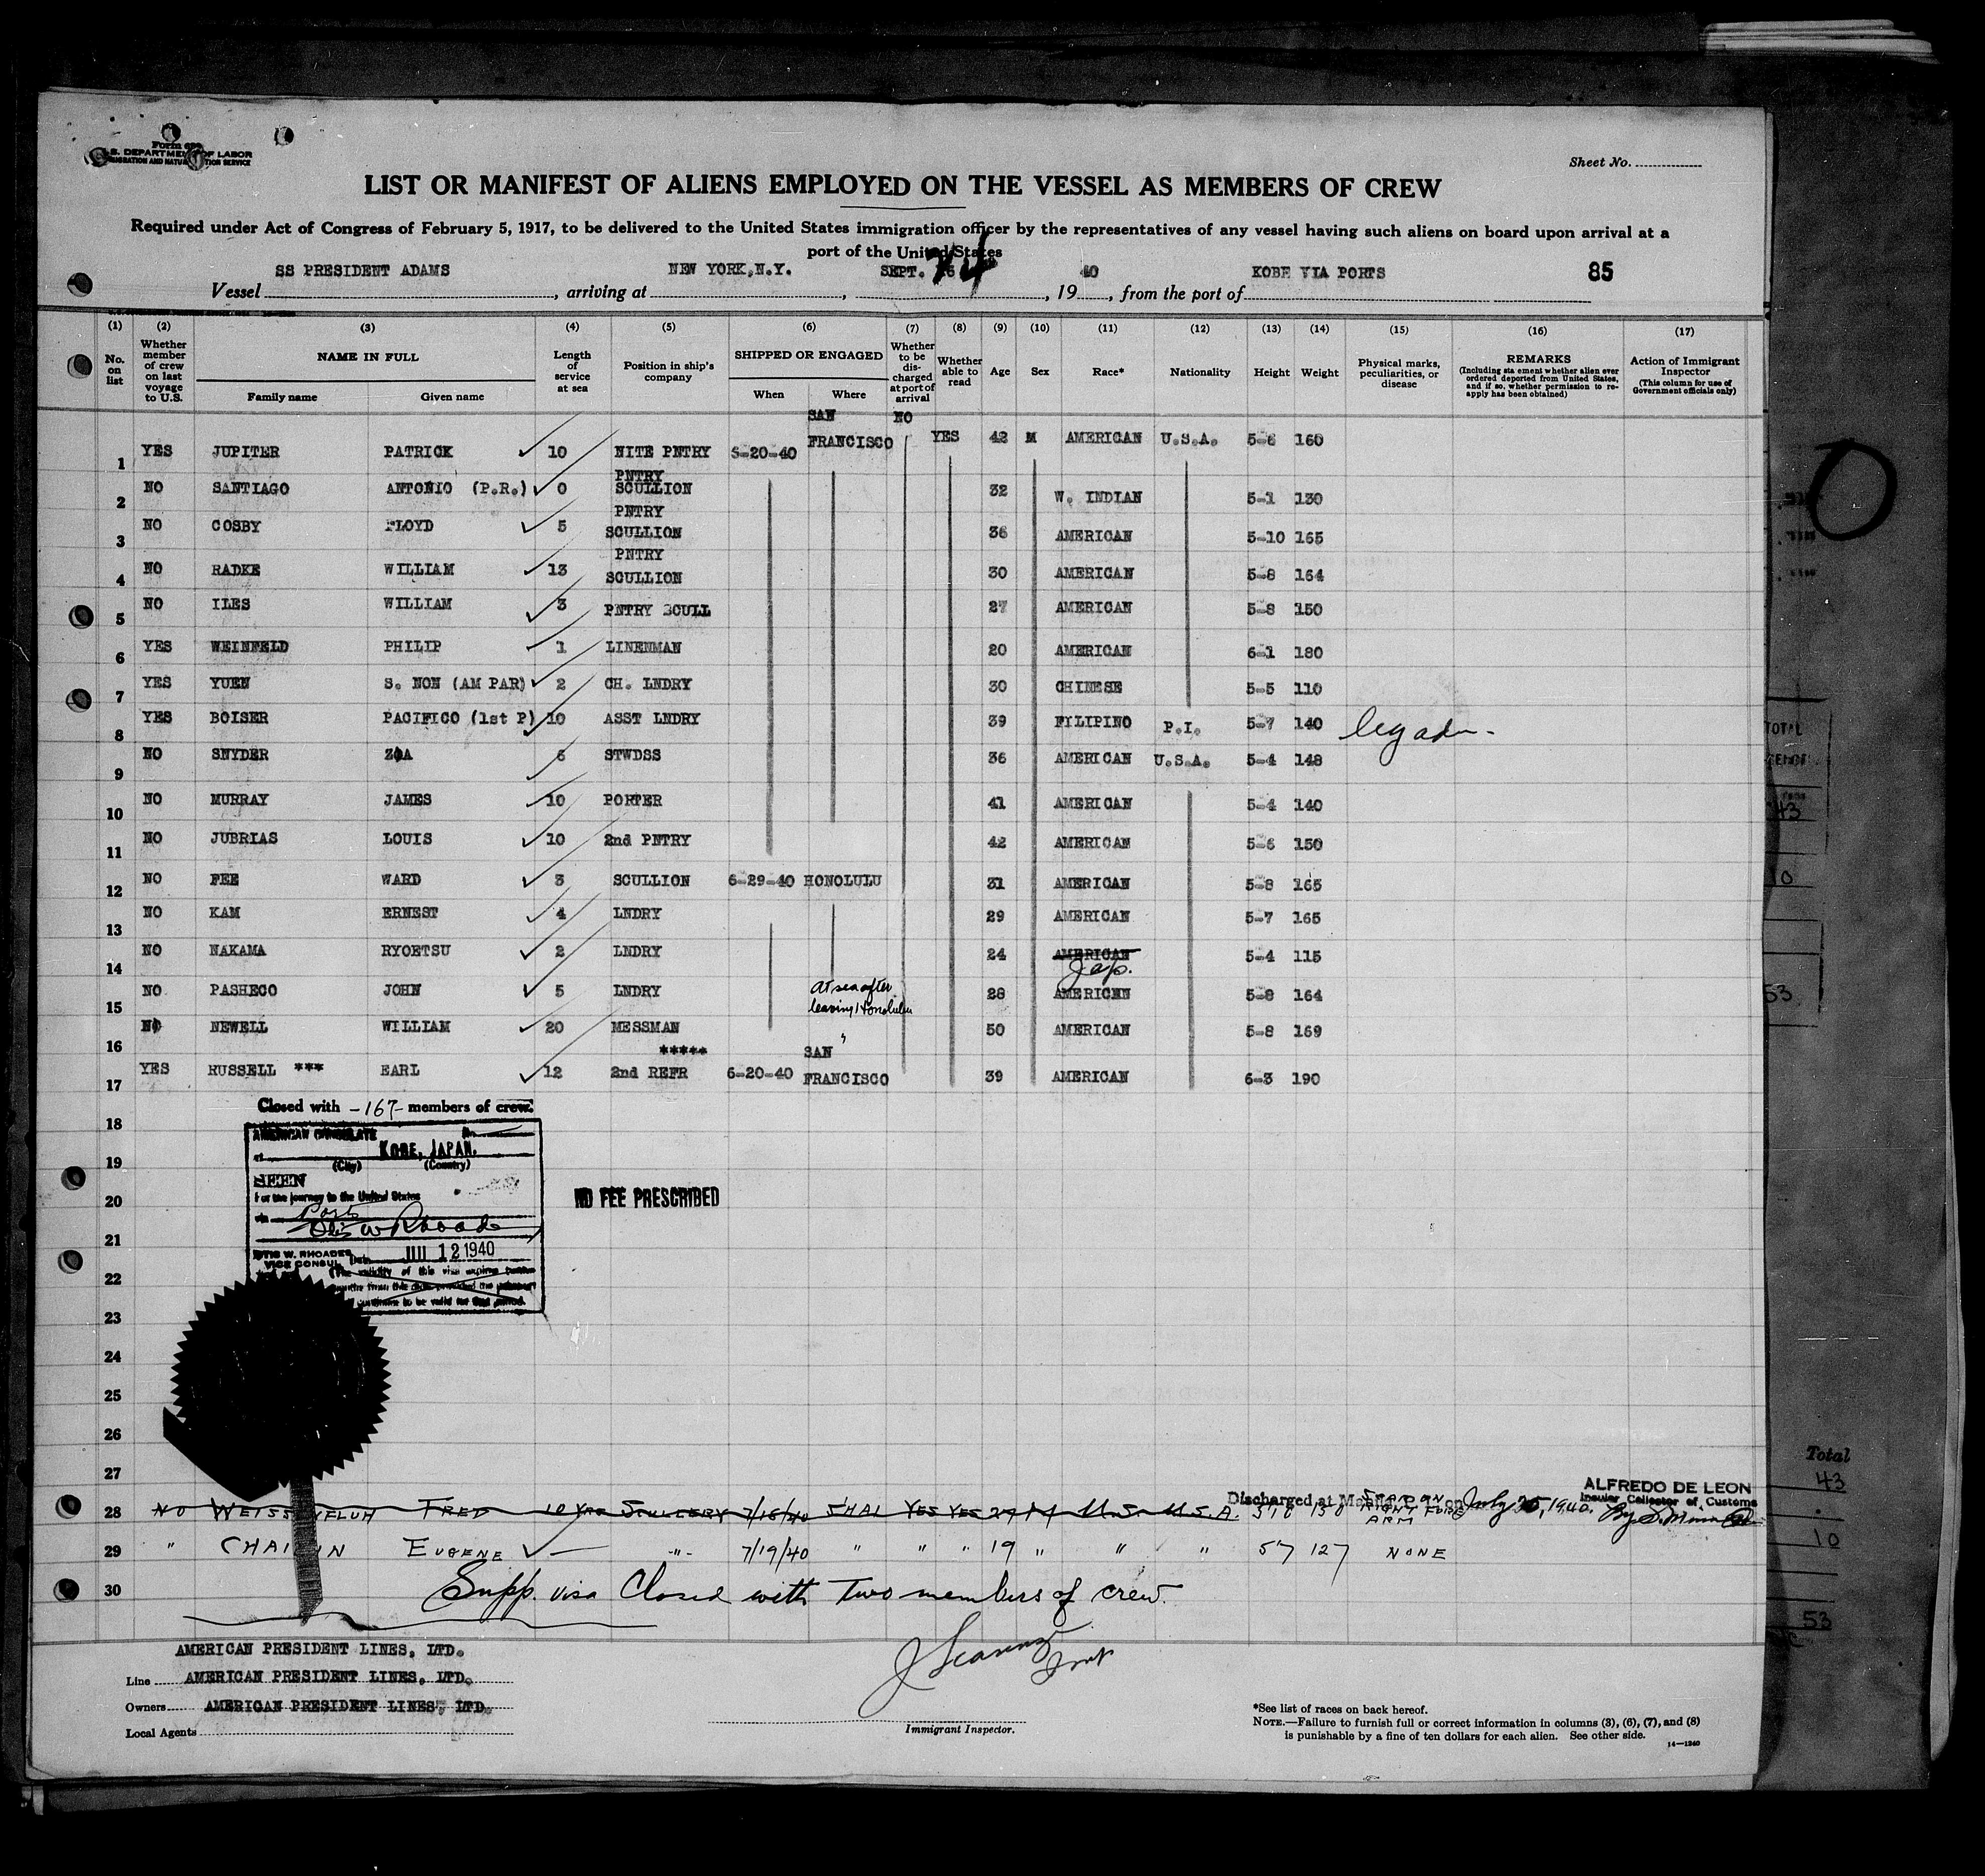 Form 689
U.S. DEPARTMENT OF LABOR
IMMIGRATION AND NATURALIZATION SERVICE
Sheet No.
LIST OR MANIFEST OF ALIENS EMPLOYED ON THE VESSEL AS MEMBERS OF CREW
Required under Act of Congress of February 5, 1917, to be delivered to the United States immigration officer by the representatives of any vessel having such aliens on board upon arrival at a
port of the United States
Vessel SS PRESIDENT ADAMS, arriving at NEW YORK, N.Y., SEPT. 24, 1940, from the port of KOBE VIA PORTS 85
(1) (2) (3) (4) (5) (6) (7) (8) (9) (10) (11) (12) (13) (14) (15) (16) (17)
No. on list
Whether member of crew on last voyage to U.S.
NAME IN FULL
Family name Given name
Length of service at sea
Position in ship's company
SHIPPED OR ENGAGED
When Where
Whether to be discharged at port of arrival
Whether able to read
Age Sex Race* Nationality Height Weight
Physical marks, peculiarities, or disease
REMARKS
(Including statement whether alien ever ordered deported from United States, and if so, whether permission to reapply has been obtained)
Action of Immigrant Inspector
(This column for use of Government officials only)
1 YES JUPITER PATRICK 10 NITE PNTRY 5-20-40 SAN FRANCISCO NO YES 42 M AMERICAN U.S.A. 5-6 160
2 NO SANTIAGO ANTONIO (P.R.) 0 PNTRY SCULLION 32 W. INDIAN 5-1 130
3 NO COSBY FLOYD 5 PNTRY SCULLION 36 AMERICAN 5-10 165
4 NO RADKE WILLIAM 13 PNTRY SCULLION 30 AMERICAN 5-8 164
5 NO ILES WILLIAM 3 PNTRY SCULL 27 AMERICAN 5-8 150
6 YES WEINFELD PHILIP 1 LINENMAN 20 AMERICAN 6-1 180
7 YES YUEN S. NON (AM PAR) 2 CH. LNDRY 30 CHINESE 5-5 110
8 YES BOISER PACIFICO (1st P) 10 ASST LNDRY 39 FILIPINO P.I. 5-7 140 leg adm-
9 NO SNYDER ZOA 6 STWDSS 36 AMERICAN U.S.A. 5-4 148
10 NO MURRAY JAMES 10 PORTER 41 AMERICAN 5-4 140
11 NO JUBRIAS LOUIS 10 2nd PNTRY 42 AMERICAN 5-6 150
12 NO FEE WARD 3 SCULLION 6-29-40 HONOLULU 31 AMERICAN 5-8 165
13 NO KAM ERNEST 4 LNDRY 29 AMERICAN 5-7 165
14 NO NAKAMA RYOETSU 2 LNDRY 24 AMERICAN Jap. 5-4 115
15 NO PASHECO JOHN 5 LNDRY At sea after leaving Honolulu 28 AMERICAN 5-8 164
16 NO NEWELL WILLIAM 20 MESSMAN " 50 AMERICAN 5-8 169
*****
17 YES RUSSELL *** EARL 12 2nd REFR 6-20-40 SAN FRANCISCO 39 AMERICAN 6-3 190
18
Closed with -167- members of crew.
AMERICAN CONSULATE No.
at KOBE, JAPAN.
(City) (Country)
SEEN
For the journey to the United States
via Ports
Otis W Rhoades
OTIS W. RHOADES
VICE CONSUL
Date 12 1940
NO FEE PRESCRIBED
19
20
21
22
23
24
25
26
27
28 NO FRED 10 YRS SCULLERY 7/18/40 S'HAI YES YES 29 M U.S. U.S.A. 5'10 130 SCAR ON RIGHT FORE ARM
Discharged at Manila, P.I. on July 25, 1940.
ALFREDO DE LEON
Insular Collector of Customs
29 " EUGENE — -"- 7/19/40 " " " 19 " " " 57 127 NONE
30 Supp. visa Closed with Two members of crew.
AMERICAN PRESIDENT LINES, LTD.
Line AMERICAN PRESIDENT LINES, LTD.
Owners AMERICAN PRESIDENT LINES, LTD.
Local Agents
Immigrant Inspector.
*See list of races on back hereof.
NOTE.—Failure to furnish full or correct information in columns (3), (6), (7), and (8)
is punishable by a fine of ten dollars for each alien. See other side.
14—1240
TOTAL
43
10
53
Total
43
10
53